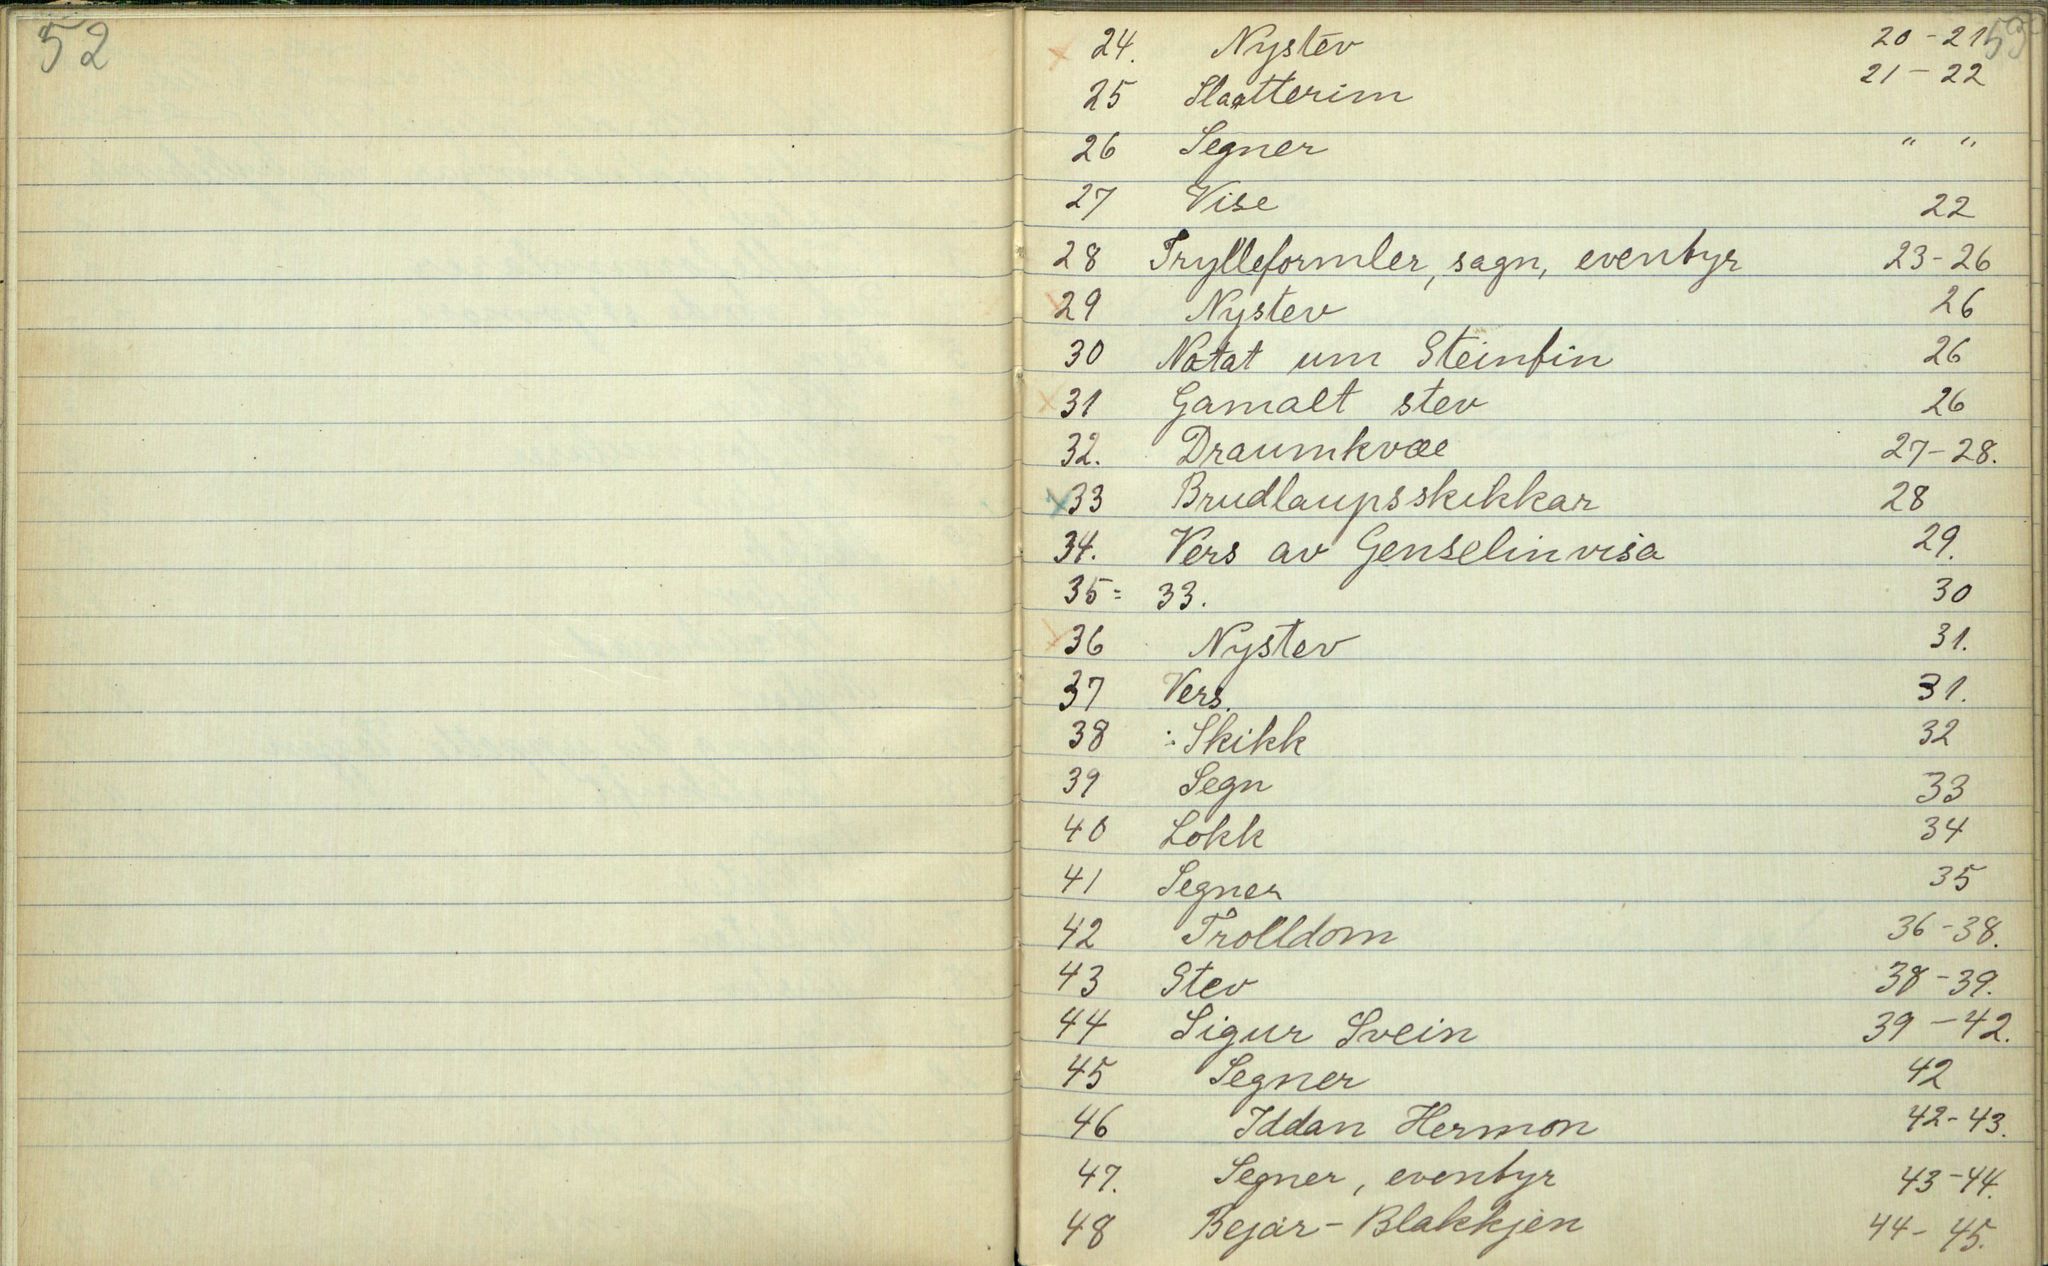 52
53
24. Nystev 20-21
25 Slaatterim 21-22
26 Segner " "
27 Vise 22
28 Trylleformler, sagn, eventyr 23-26
29 Nystev 26
30 Notat um Steinfin 26
31 Gamalt stev 26
32. Draumkvæe 27-28.
33 Brudlaupsskikkar 28
34. Vers av Genselinvisa 29.
35 = 33. 30
36 Nystev 31.
37 Vers. 31.
38 Skikk 32
39 Segn 33
40 Lokk 34
41 Segner 35
42 Trolldom 36-38.
43 Stev 38-39.
44 Sigur Svein 39-42.
45 Segner 42
46 Iddan Hermon 42-43.
47. Segner, eventyr 43-44.
48 Bejar-Blakkjen 44-45.